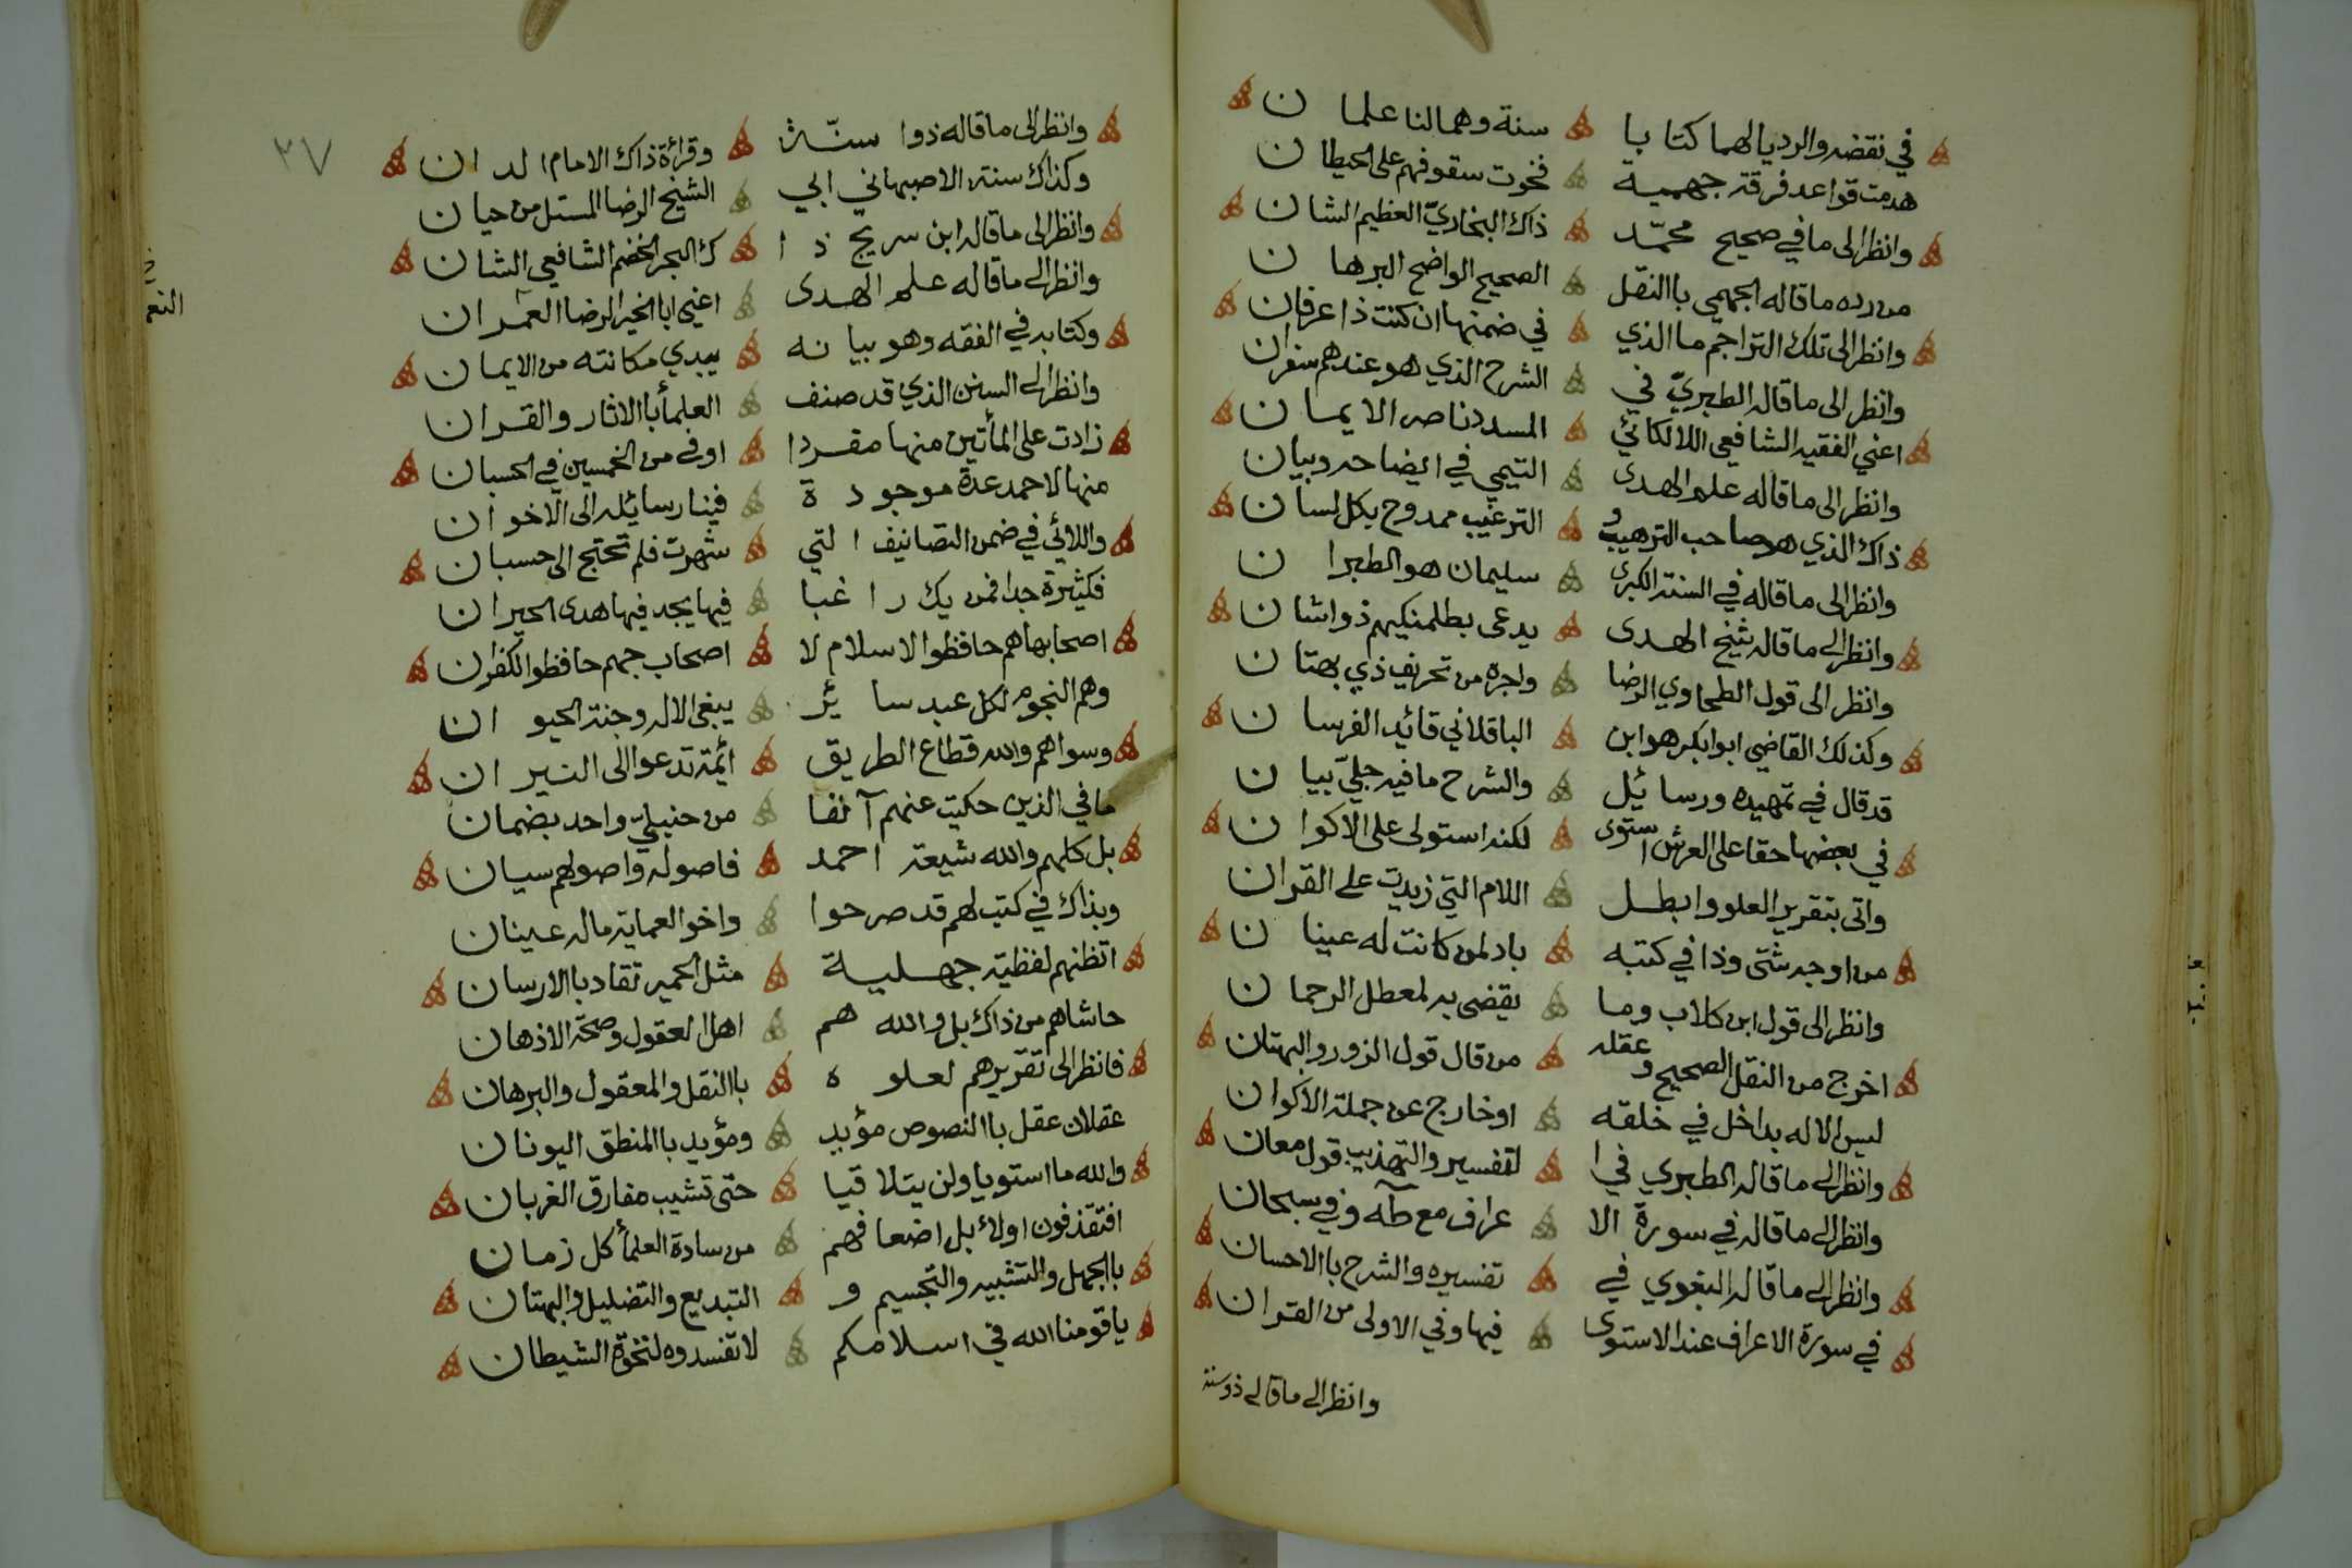 في نقضه والرد يا لهما كتابا سنة وهما لنا علمان
هدمت قواعد فرقة جهمية فخوت سقوفهم على الحيطان
وانظر الى ما في صحيح محمّد ذاك البخاريّ العظيم الشان
من رده ما قاله الجهمي باالنقل الصحيح الواضح البرهان
وانظر الى تلك التراجم ما الذي في ضمنها ان كنت ذا عرفان
وانظر الى ما قاله الطبريّ في الشرح الذي هو عندهم سفران
اعني الفقيه الشافعي اللالكائي المسدد ناصر الايمان
وانظر الى ما قاله علم الهدى التيمي في ايضاحه وبيان
ذاك الذي هو صاحب الترهيب و الترغيب ممدوح بكل لسان
وانظر الى ما قاله في السنة الكبرى سليمان هو الطبران
وانظر الى ما قاله شيخ الهدى يدعى بطلمنكيهم ذوا شان
وانظر الى قول الطحاوي الرضا واجره من تحريف ذي بهتان
وكذلك القاضي ابوابكر هو ابن الباقلاني قائد الفرسان
قد قال في تمهيده ورسائل والشرح ما فيه جليّ بيان
في بعضها حقا على العرش استوى لكنه استولى على الاكوان
واتى بتقرير العلو وابطل اللام التي زيدت على القران
من اوجه شتى وذا في كتبه باد لمن كانت له عينان
وانظر الى قول ابن كلاب وما يقضي به لمعطل الرحمان
اخرج من النقل الصحيح و عقله من قال قول الزور والبهتان
ليس الاله بداخل في خلقه او خارج عن جملة الاكوان
وانظر الى ما قاله الطبري في ا لتفسير والتهذيب قول معان
وانظر الى ما قاله في سورة الا عراف مع طه وفي سبحان
وانظر الى ما قاله البغوي في تفسيره والشرح باالاحسان
في سورة الاعراف عند الاستوى فيها وفي الاولى من القران
وانظر الى ما قاله ذو سنة
٣٧
وانظر الى ما قاله ذوا سنّة وقرائة ذاك الامام الدان
وكذاك سنة الاصبهاني ابي الشيخ الرضا المستل من حيان
وانظر الى ما قاله ابن سريج ذا ك البحر الخضم الشافعي الشان
وانظر الى ما قاله علم الهدى اعني ابا الخير الرضا العمران
وكتابه في الفقه وهو بيانه يبدي مكانته من الايمان
وانظر الى السنن الذي قد صنف العلمأ باالاثار والقران
زادت على المأتين منها مفردا اوفى من الخمسين في الحسبان
منها لاحمد عدة موجودة فينا رسائله الى الاخوان
واللائي في ضمن التصانيف التي شهرت فلم تحتج الى حسبان
فكثيرة جدا فمن يك راغبا فيها يجد فيها هدى الحيران
اصحابها هم حافظوا الاسلام لا اصحاب جهم حافظوا الكفران
وهم النجوم لكل عبد سائر يبغي الاله وجنة الحيوان
وسواهم والله قطاع الطريق ائمة تدعوا الى النيران
ما في الذين حكيت عنهم آنفا من حنبليّ واحد بضمان
بل كلهم والله شيعة احمد فاصوله واصولهم سيان
وبذاك في كتب لهم قد صرحوا واخوا العماية ماله عينان
اتظنهم لفظية جهلية مثل الحمير تقاد باالارسان
حاشاهم من ذاك بل والله هم اهل العقول وصحة الاذهان
فانظر الى تقريرهم لعلوه باالنقل والمعقول والبرهان
عقلان عقل باالنصوص مؤيد ومؤيد باالمنطق اليونان
والله ما استويا ولن يتلاقيا حتى تشيب مفارق الغربان
افتقذفون اولاء بل اضعافهم من سادة العلمأ كل زمان
باالجهل والتشبيه والتجسيم و التبديع والتضليل والبهتان
يا قومنا الله في اسلامكم لا تفسدوه لنخوة الشيطان